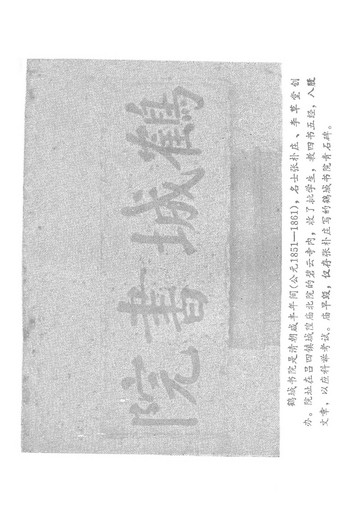 鹤城书院是清朝咸丰年间(公元1851—1861)，名士张朴庄、李草堂创
办。院址在吕四镇城隍庙北院的碧云寺内，收了批学生，教四书五经，八股
文章，以应科举考试。庙早毁，仅存张朴庄写的鹤城书院青石碑。
鶴城書院